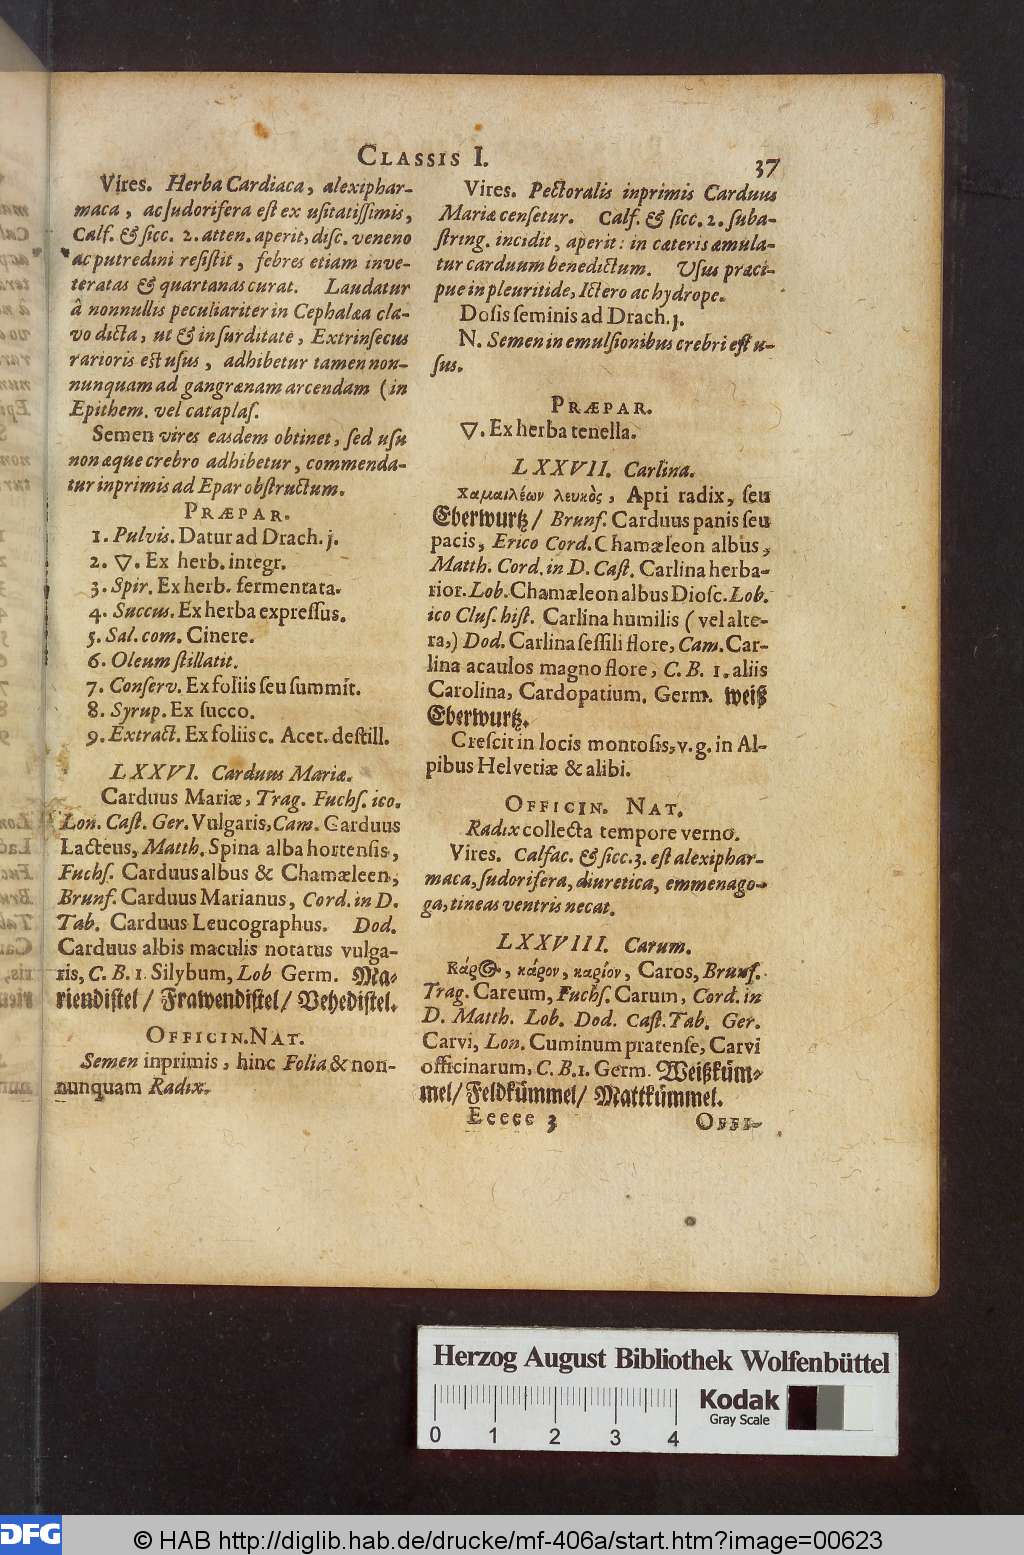 CLASSIS I.
37
Vires. Herba Cardiaca, alexiphar-
maca, ac sudorifera est ex usitatissimis,
Calf. & sicc. 2. atten. aperit, disc. veneno
ac putredini resistit, febres etiam inve-
teratas & quartanas curat. Laudatur
à nonnullis peculiariter in Cephalæa cla-
vo dicta, ut & in surditate, Extrinsecus
rarioris est usus, adhibetur tamen non-
nunquam ad gangrænam arcendam (in
Epithem. vel cataplas.
Semen vires easdem obtinet, sed usu
non æque crebro adhibetur, commenda-
tur inprimis ad Epar obstructum.
PRÆPAR.
1. Pulvis. Datur ad Drach. j.
2. ▽. Ex herb. integr.
3. Spir. Ex herb. fermentata.
4. Succus. Ex herba expressus.
5. Sal. com. Cinere.
6. Oleum stillatit.
7. Conserv. Ex foliis seu summit.
8. Syrup. Ex succo.
9. Extract. Ex foliis c. Acet. destill.
LXXVI. Carduus Mariæ.
Carduus Mariæ, Trag. Fuchs. ico.
Lon. Cast. Ger. Vulgaris, Cam. Carduus
Lacteus, Matth. Spina alba hortensis,
Fuchs. Carduus albus & Chamæleen,
Brunf. Carduus Marianus, Cord. in D.
Tab. Carduus Leucographus. Dod.
Carduus albis maculis notatus vulga-
ris, C. B. 1. Silybum, Lob Germ. Ma-
riendistel / Frawendistel / Vehedistel.
OFFICIN. NAT.
Semen inprimis, hinc Folia & non-
nunquam Radix.
Vires. Pectoralis inprimis Carduus
Mariæ censetur. Calf. & sicc. 2. suba-
string. incidit, aperit: in cæteris æmula-
tur carduum benedictum. Usus præci-
pue in pleuritide, Ictero ac hydrope.
Dosis seminis ad Drach. j.
N. Semen in emulsionibus crebri est u-
sus.
PRÆPAR.
▽. Ex herba tenella.
LXXVII. Carlina.
χαμαιλέων λευκὸς, Apri radix, seu
Eberwurtz / Brunf. Carduus panis seu
pacis, Erico Cord. Chamæleon albus,
Matth. Cord. in D. Cast. Carlina herba-
rior. Lob. Chamæleon albus Diosc. Lob.
ico Clus. hist. Carlina humilis (vel alte-
ra,) Dod. Carlina sessili flore, Cam. Car-
lina acaulos magno flore, C. B. 1. aliis
Carolina, Cardopatium. Germ. weiß
Eberwurtz.
Crescit in locis montosis, v. g. in Al-
pibus Helvetiæ & alibi.
OFFICIN. NAT.
Radix collecta tempore verno.
Vires. Calfac. & sicc. 3. est alexiphar-
maca, sudorifera, diuretica, emmenago-
ga, tineas ventris necat.
LXXVIII. Carum.
Κάρος, κάρον, καρίον, Caros, Brunf.
Trag. Careum, Fuchs. Carum, Cord. in
D. Matth. Lob. Dod. Cast. Tab. Ger.
Carvi, Lon. Cuminum pratense, Carvi
officinarum, C. B. 1. Germ. Weißküm-
mel / Feldkümmel / Mattkümmel.
Eeeee 3
OFFI-
Herzog August Bibliothek Wolfenbüttel
0 1 2 3 4
Kodak
Gray Scale
DFG
© HAB http://diglib.hab.de/drucke/mf-406a/start.htm?image=00623